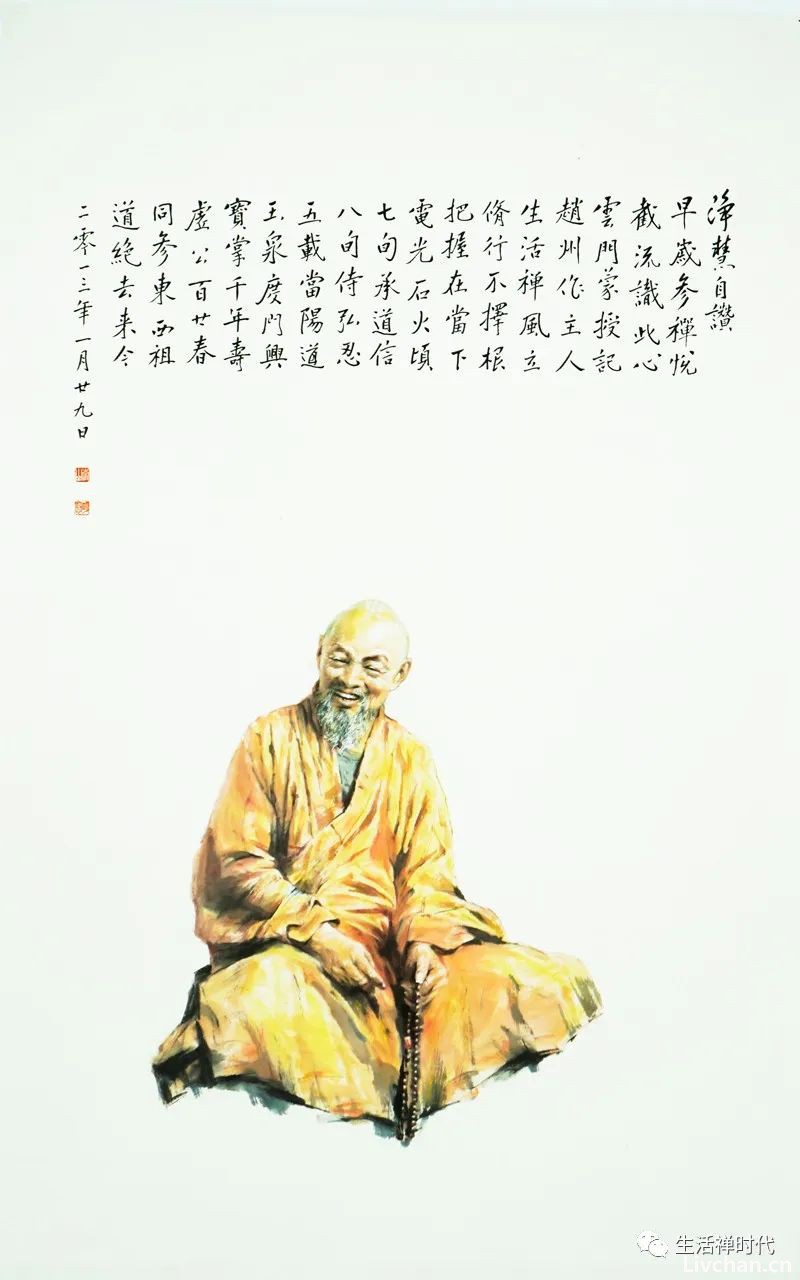 淨慧自讚
早歲參禪悅
截流識此心
雲門蒙授記
趙州作主人
生活禪風立
脩行不擇根
把握在當下
電光石火頃
七旬承道信
八旬侍弘忍
五載當陽道
玉泉度門興
寶掌千年壽
虛公百廿春
同參東西祖
道絕去来今
二零一三年一月廿九日
生活禅时代
Livchan.cn